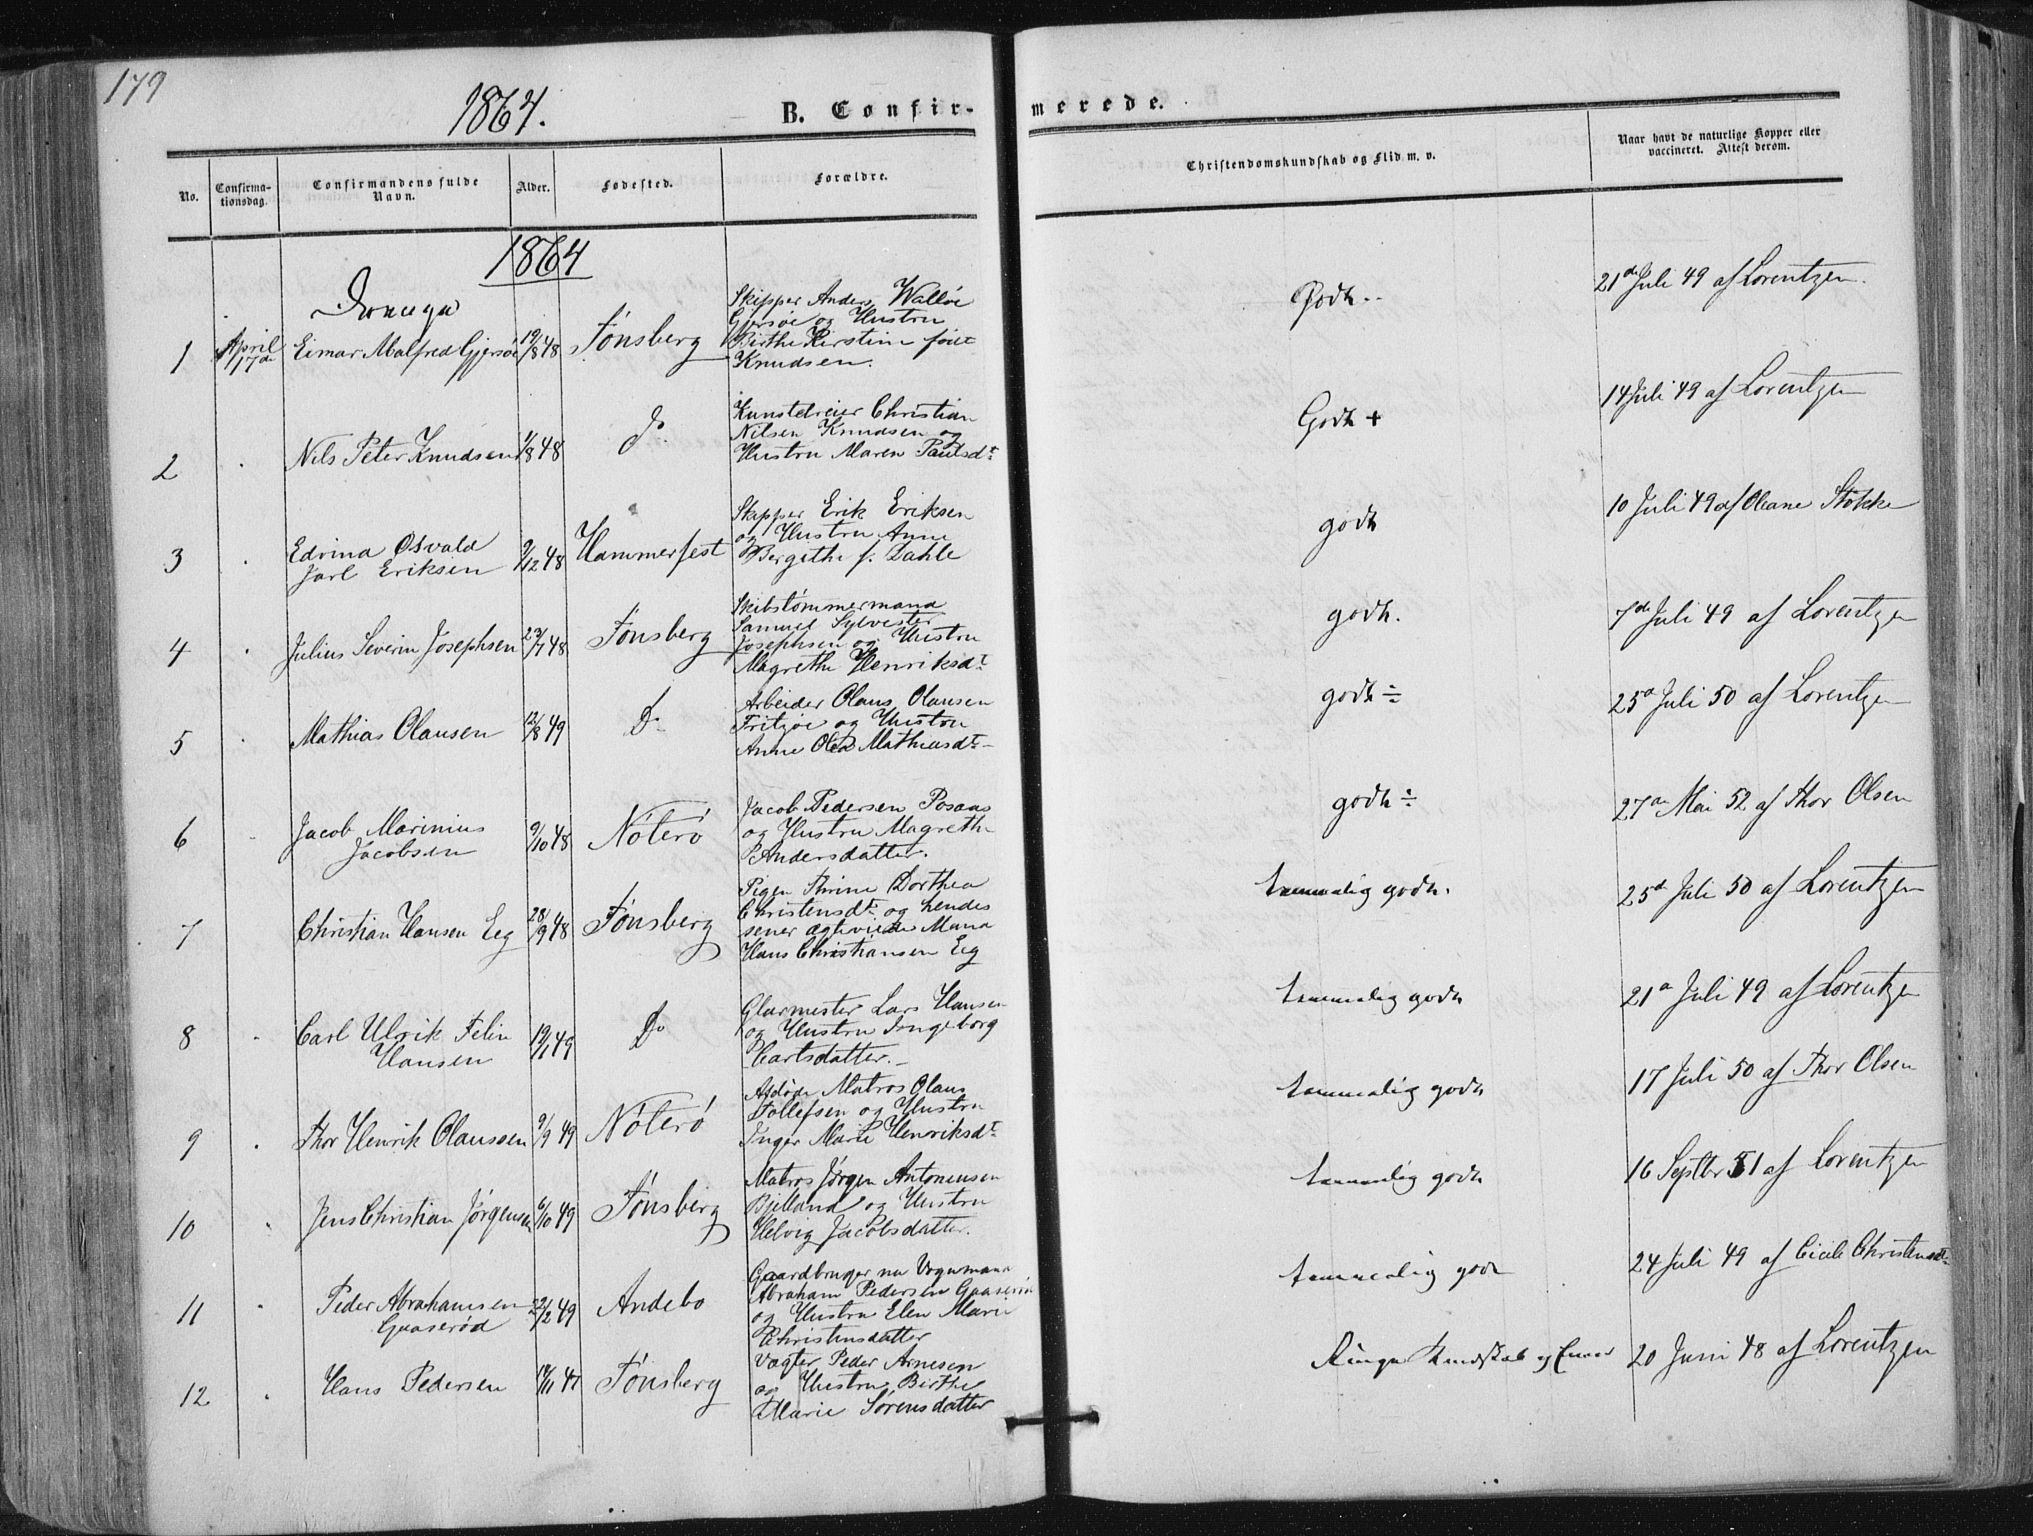 179
1864.
B. Confir-
merede.
No.
Confirma-
tionsdag.
Confirmandens fulde
Navn.
Alder.
Fødested.
Forældre.
Christendomskundskab og Flid m. v.
Naar havt de naturlige Kopper eller
vaccineret. Attest derom.
1864
Drenge
1 April 17de Eimar Malfred Gjersøe 19/8 48 Tønsberg
Skipper Anders Walløe
Gjersøe og Hustru
Birthe Kirstine født
Knudsen.
Godt. 21de Juli 49 af Lorentzen.
2 Nils Peter Knudsen 1/8 48 do
Kunstdreier Christian
Nilsen Knudsen og
Hustru Maren Paulsdt
Godt + 14 Juli 49 af Lorentzen
3 Edvind Osvald
Jarl Eriksen 9/12 48 Hammerfest
Skipper Erik Eriksen
og Hustru Anne
Bergithe f. Dahle
godt 10 Juli 49 af Oleane Stokke
4 Julius Severin Josephsen 48 Tønsberg
Skibstømmermand
Samuel Sylvester
Josephsen og Hustru
Magrethe Henriksdt
godt. 7de Juli 49 af Lorentzen
5 Mathias Olausen 12/8 49 Do
Arbeider Olaus Olausen
Fritzøe og Hustru
Anne Olea Mathiasdt
godt ÷ 25d Juli 50 af Lorentzen
6 Jacob Marinius
Jacobsen 9/10 48 Nøterø
Jacob Pedersen
og Hustru Magrethe
Andersdatter.
godt ÷ 27de Mai 52 af Thor Olsen
7 Christian Hansen Eeg 28/9 48 Tønsberg
Pigen Thrine Dorthea
Christensdt og hendes
sener ægteviede Mand
Hans Christiansen Eeg
temmelig godt. 25d Juli 50 af Lorentzen
8 Carl Ulrik Felin
Hansen 19/1 49 Do
Glarmester Lars Hansen
og Hustru Ingeborg
Carlsdatter.
temmelig godt 21d Juli 49 af Lorentzen
9 Thor Henrik Olaussen 9/9 49 Nøterø
Afdøde Matros Olaus
Tollefsen og Hustru
Inger Marie Henriksdt
temmelig godt 17 Juli 50 af Thor Olsen
10 Jens Christian Jørgensen 6/10 49 Tønsberg
Matros Jørgen Antonensen
Bjelland og Hustru
Helvig Jacobsdatter.
temmelig godt 16 Septbr 51 af Lorentzen
11 Peder Abrahamsen
Gaaserød 22/2 49 Andebo
Gaardbruger nu Vognmand
Abraham Pedersen Gaaserød
og Hustru Elen Marie
Christensdatter
temmelig godt 24 Juli 49 af Cicile Christensdt
12 Hans Pedersen 14/11 47 Tønsberg
Vægter Peder Arnesen
og Hustru Birthe
Marie Sørensdatter
Ringe Kundskab og 20 Juni 48 af Lorentzen